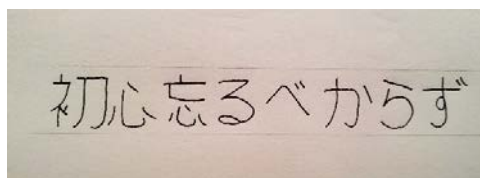 初心忘るべからず